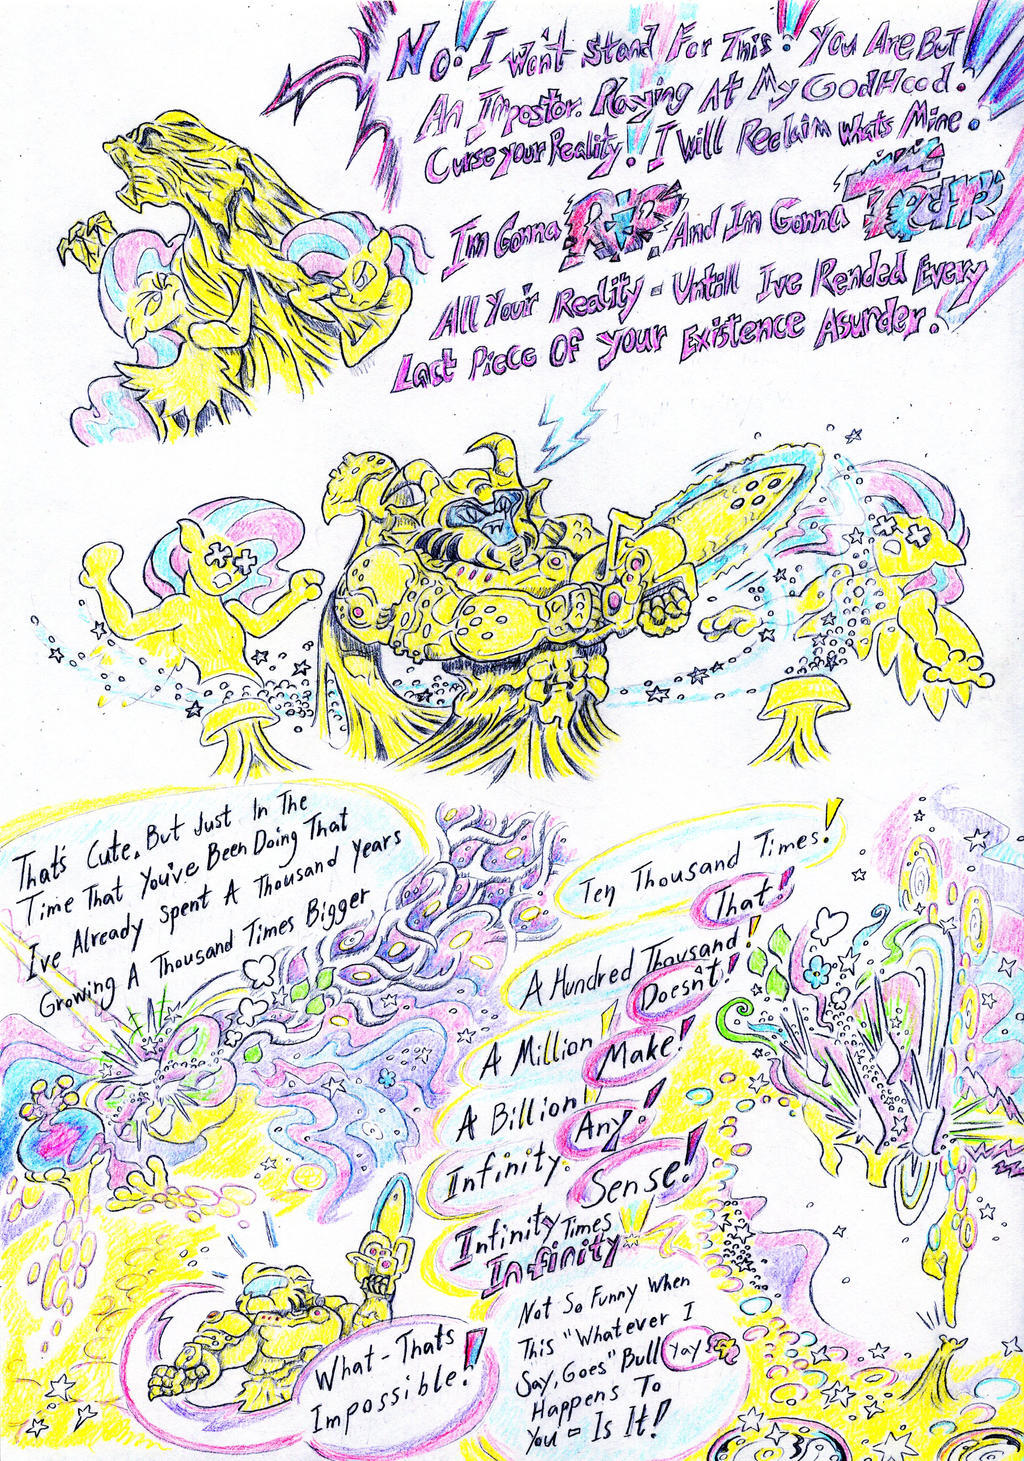 No! I Won't Stand For This! You Are But
An Impostor. Playing At My GodHood.
Curse your Reality! I Will Reclaim whats Mine!
I'm Gonna RIP, And Im Gonna TEAR
All Your Reality - Untill Ive Rended Every
Last Piece Of your Existence Asunder!
That's Cute. But Just In The
Time That You've Been Doing That
Ive Already Spent A Thousand Years
Growing A Thousand Times Bigger
Ten Thousand Times!
That!
A Hundred Thousand!
Doesn't!
A Million!
Make!
A Billion!
Any!
Infinity.
Sense!
Infinity Times
Infinity
What - Thats
Impossible!
Not So Funny When
This "Whatever I
Say, Goes" Bull yays
Happens To
You - Is It!